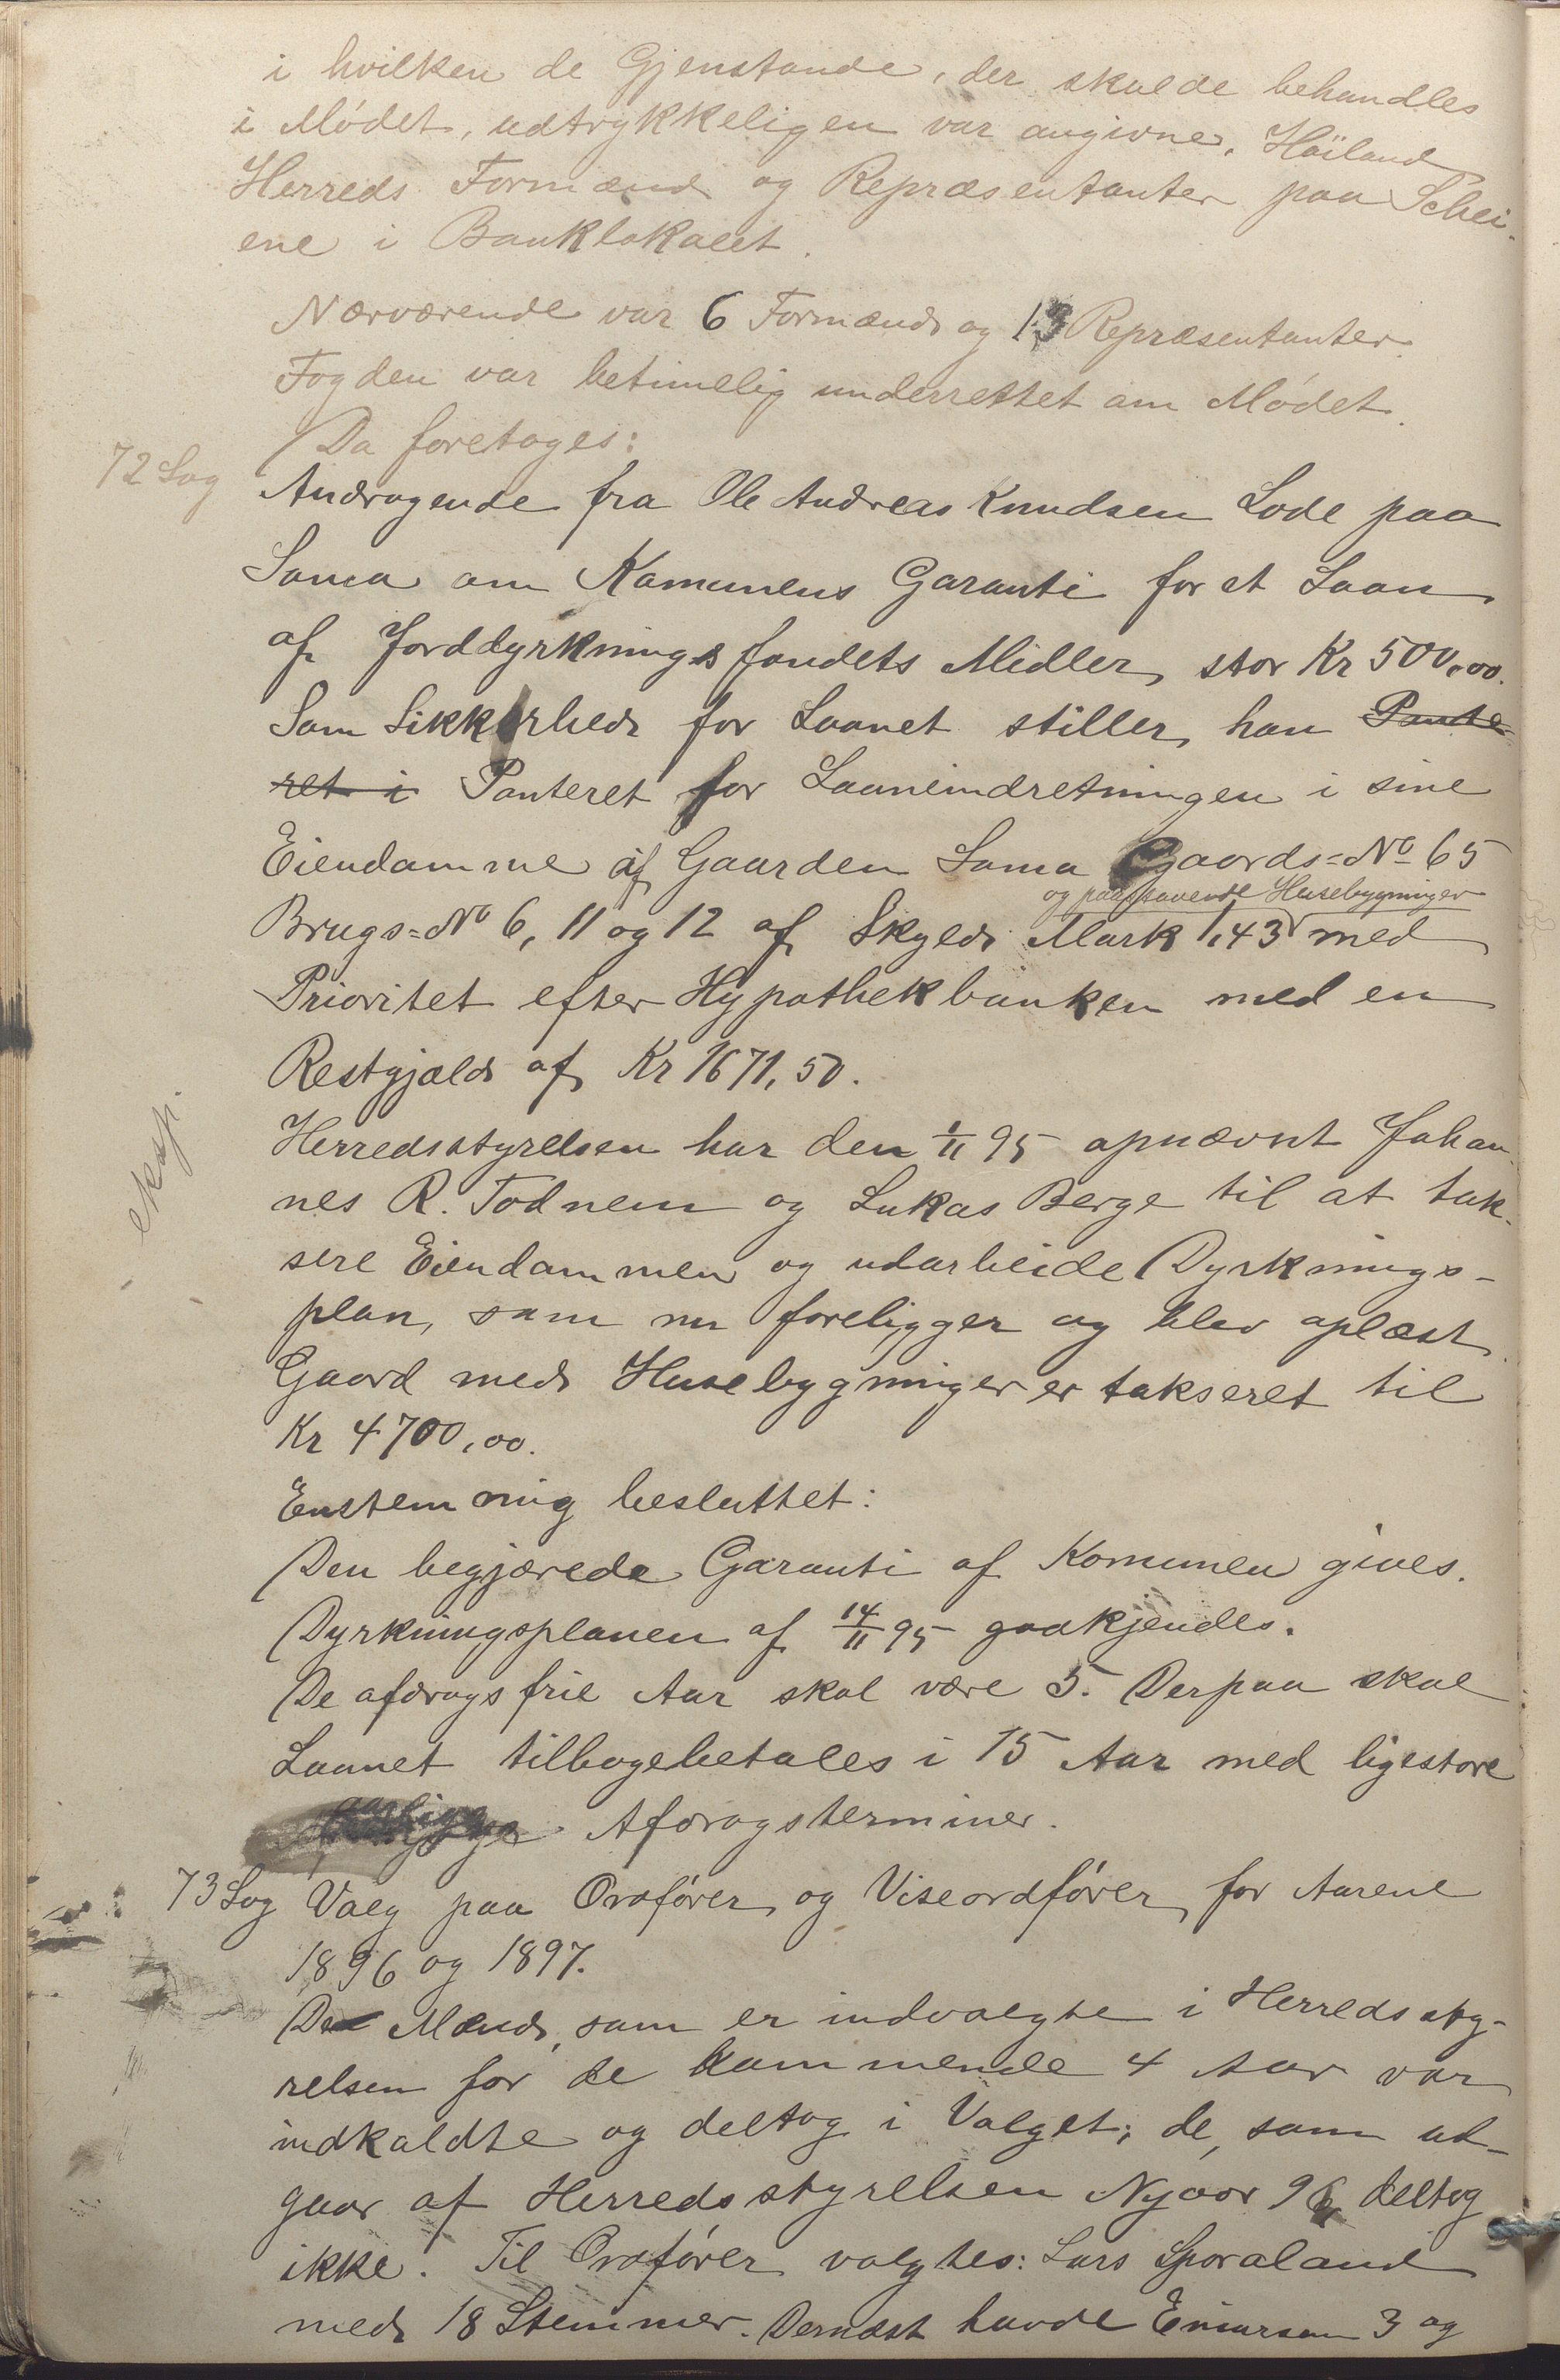 i hvilken de Gjenstande, der skulde behandles
i Mødet, udtrykkeligen var angivne, Høiland
Herreds Formænd og Repræsentanter paa Schei-
ene i Banklokalet.
Nærværende var 6 Formænd og 13 Repræsentanter.
Fogden var betimelig underrettet om Mødet.
Da foretoges:
72 Sag Andragende fra Ole Andreas Knudsen Lode paa
Soma om Kommunens Garanti for et Laan
af Jorddyrkningsfondets Midler, stor Kr 500,00.
Som Sikkerhed for Laanet stiller han Pante-
ret i Panteret for Laaneindretningen i sine
Eiendomme af Gaarden Soma Gaards=No 65
og paastaaende Husebygninger
Brugs=No 6, 11 og 12 af Skyld Mark 1,43 med
Prioritet efter Hypothekbanken med en
Restgjæld af Kr 1671,50.
eksp.
Herredsstyrelsen har den 1/11 95 opnævnt Johan-
nes R. Todnem og Lukas Berge til at tak-
sere Eiendommen og udarbeide Dyrknings-
plan, som nu foreligger og blev oplæst.
Gaard med Husebygninger er takseret til
Kr 4700,00.
Enstemmig besluttet:
Den begjærede Garanti af Komunen gives.
Dyrkningsplanen af 14/11 95 godkjendes.
De afdragsfrie Aar skal være 5. Derpaa skal
Laanet tilbagebetales i 15 Aar med ligestore
Afdragsterminer.
73 Sag Valg paa Ordfører og Viseordfører for Aarene
1896 og 1897.
De Mænd, som er indvalgte i Herredssty-
relsen for de kommende 4 Aar var
indkaldte og deltog i Valget; de, som ud-
gaar af Herredsstyrelsen Nyaar 96 deltog
ikke. Til Ordfører valgtes: Lars Sporaland
med 18 Stemmer. Dernæst havde Einarsen 3 og